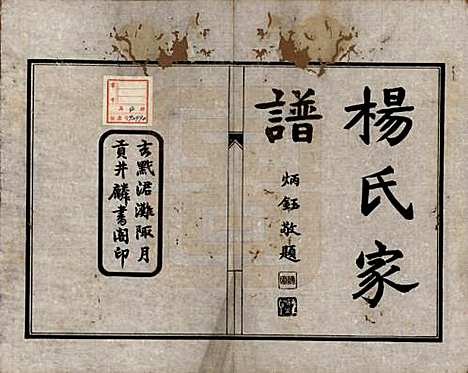 楊氏家
譜
炳鈺敬題
玄黓涒灘陬月
貢井麟書閣印